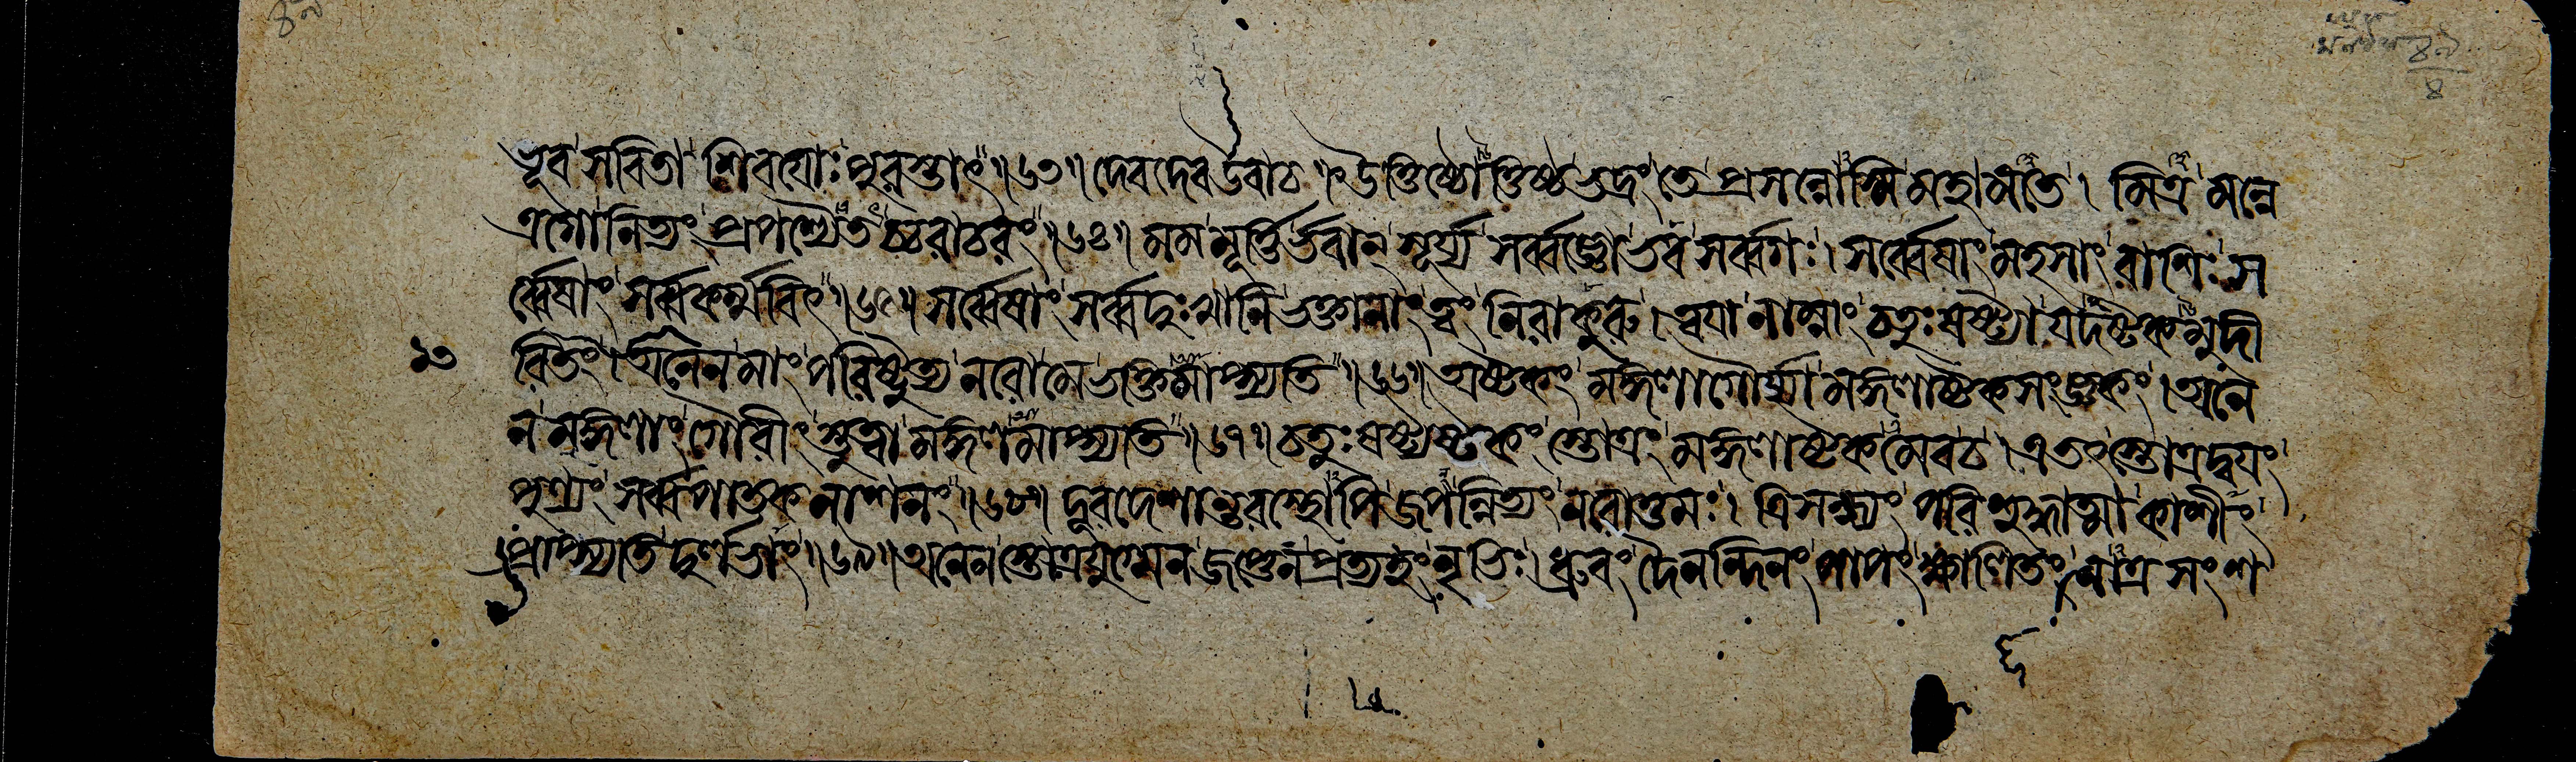 ৪৯
৪৯
৪
ভূব সবিতা শিবয়োঃ পুরস্তাৎ॥৬৩॥ দেবদেব উবাচ॥ উত্তিষ্ঠোত্তিষ্ঠ ভদ্রং তে প্রসন্নোস্মি মহামতে। মিত্র মন্নে
ত্রগো নিত্যং প্রপশ্যৈতচ্চরাচরং॥৬৪॥ মম মূর্ত্তির্ভবান্ সূর্য্য সর্ব্বজ্ঞো ভব সর্ব্বগঃ। সর্ব্বেষাং মহসাং রাশিঃ স
র্ব্বেষাং সর্ব্বকর্ম্মবিৎ॥৬৫॥ সর্ব্বেষাং সর্ব্বদুঃখানি ভক্তানাং ত্বং নিরাকুরু। ত্বয়া নাম্নাং চতুঃষষ্ট্যা যদষ্টকমুদী
১৩ রিতং। অনেন মাং পরিষ্টুত্য নরো মে ভক্তিমাপ্স্যতি॥৬৬॥ অষ্টকং মঙ্গলাগৌর্য্যা মঙ্গলাষ্টকসংজ্ঞকং। অনে
ন মঙ্গলাং গৌরীং স্তুত্বা মঙ্গলমাপ্স্যতি॥৬৭॥ চতুঃষষ্ট্যষ্টকং স্তোত্রং মঙ্গলাষ্টকমেব চ। এতৎ স্তোত্রদ্বয়ং
পুণ্যং সর্ব্বপাতকনাশনং॥৬৮॥ দূরদেশান্তরস্থোপি জপন্নিত্যং নরোত্তমঃ। ত্রিসন্ধ্যং পরিশুদ্ধাত্মা কাশীং
প্রাপ্স্যতি দুর্লভাং॥৬৯॥ অনেন স্তোত্রযুগ্মেন জপ্তেন প্রত্যহং নৃভিঃ। ধ্রুবং দৈনন্দিনং পাপং ক্ষালিতং নাত্র সংশ